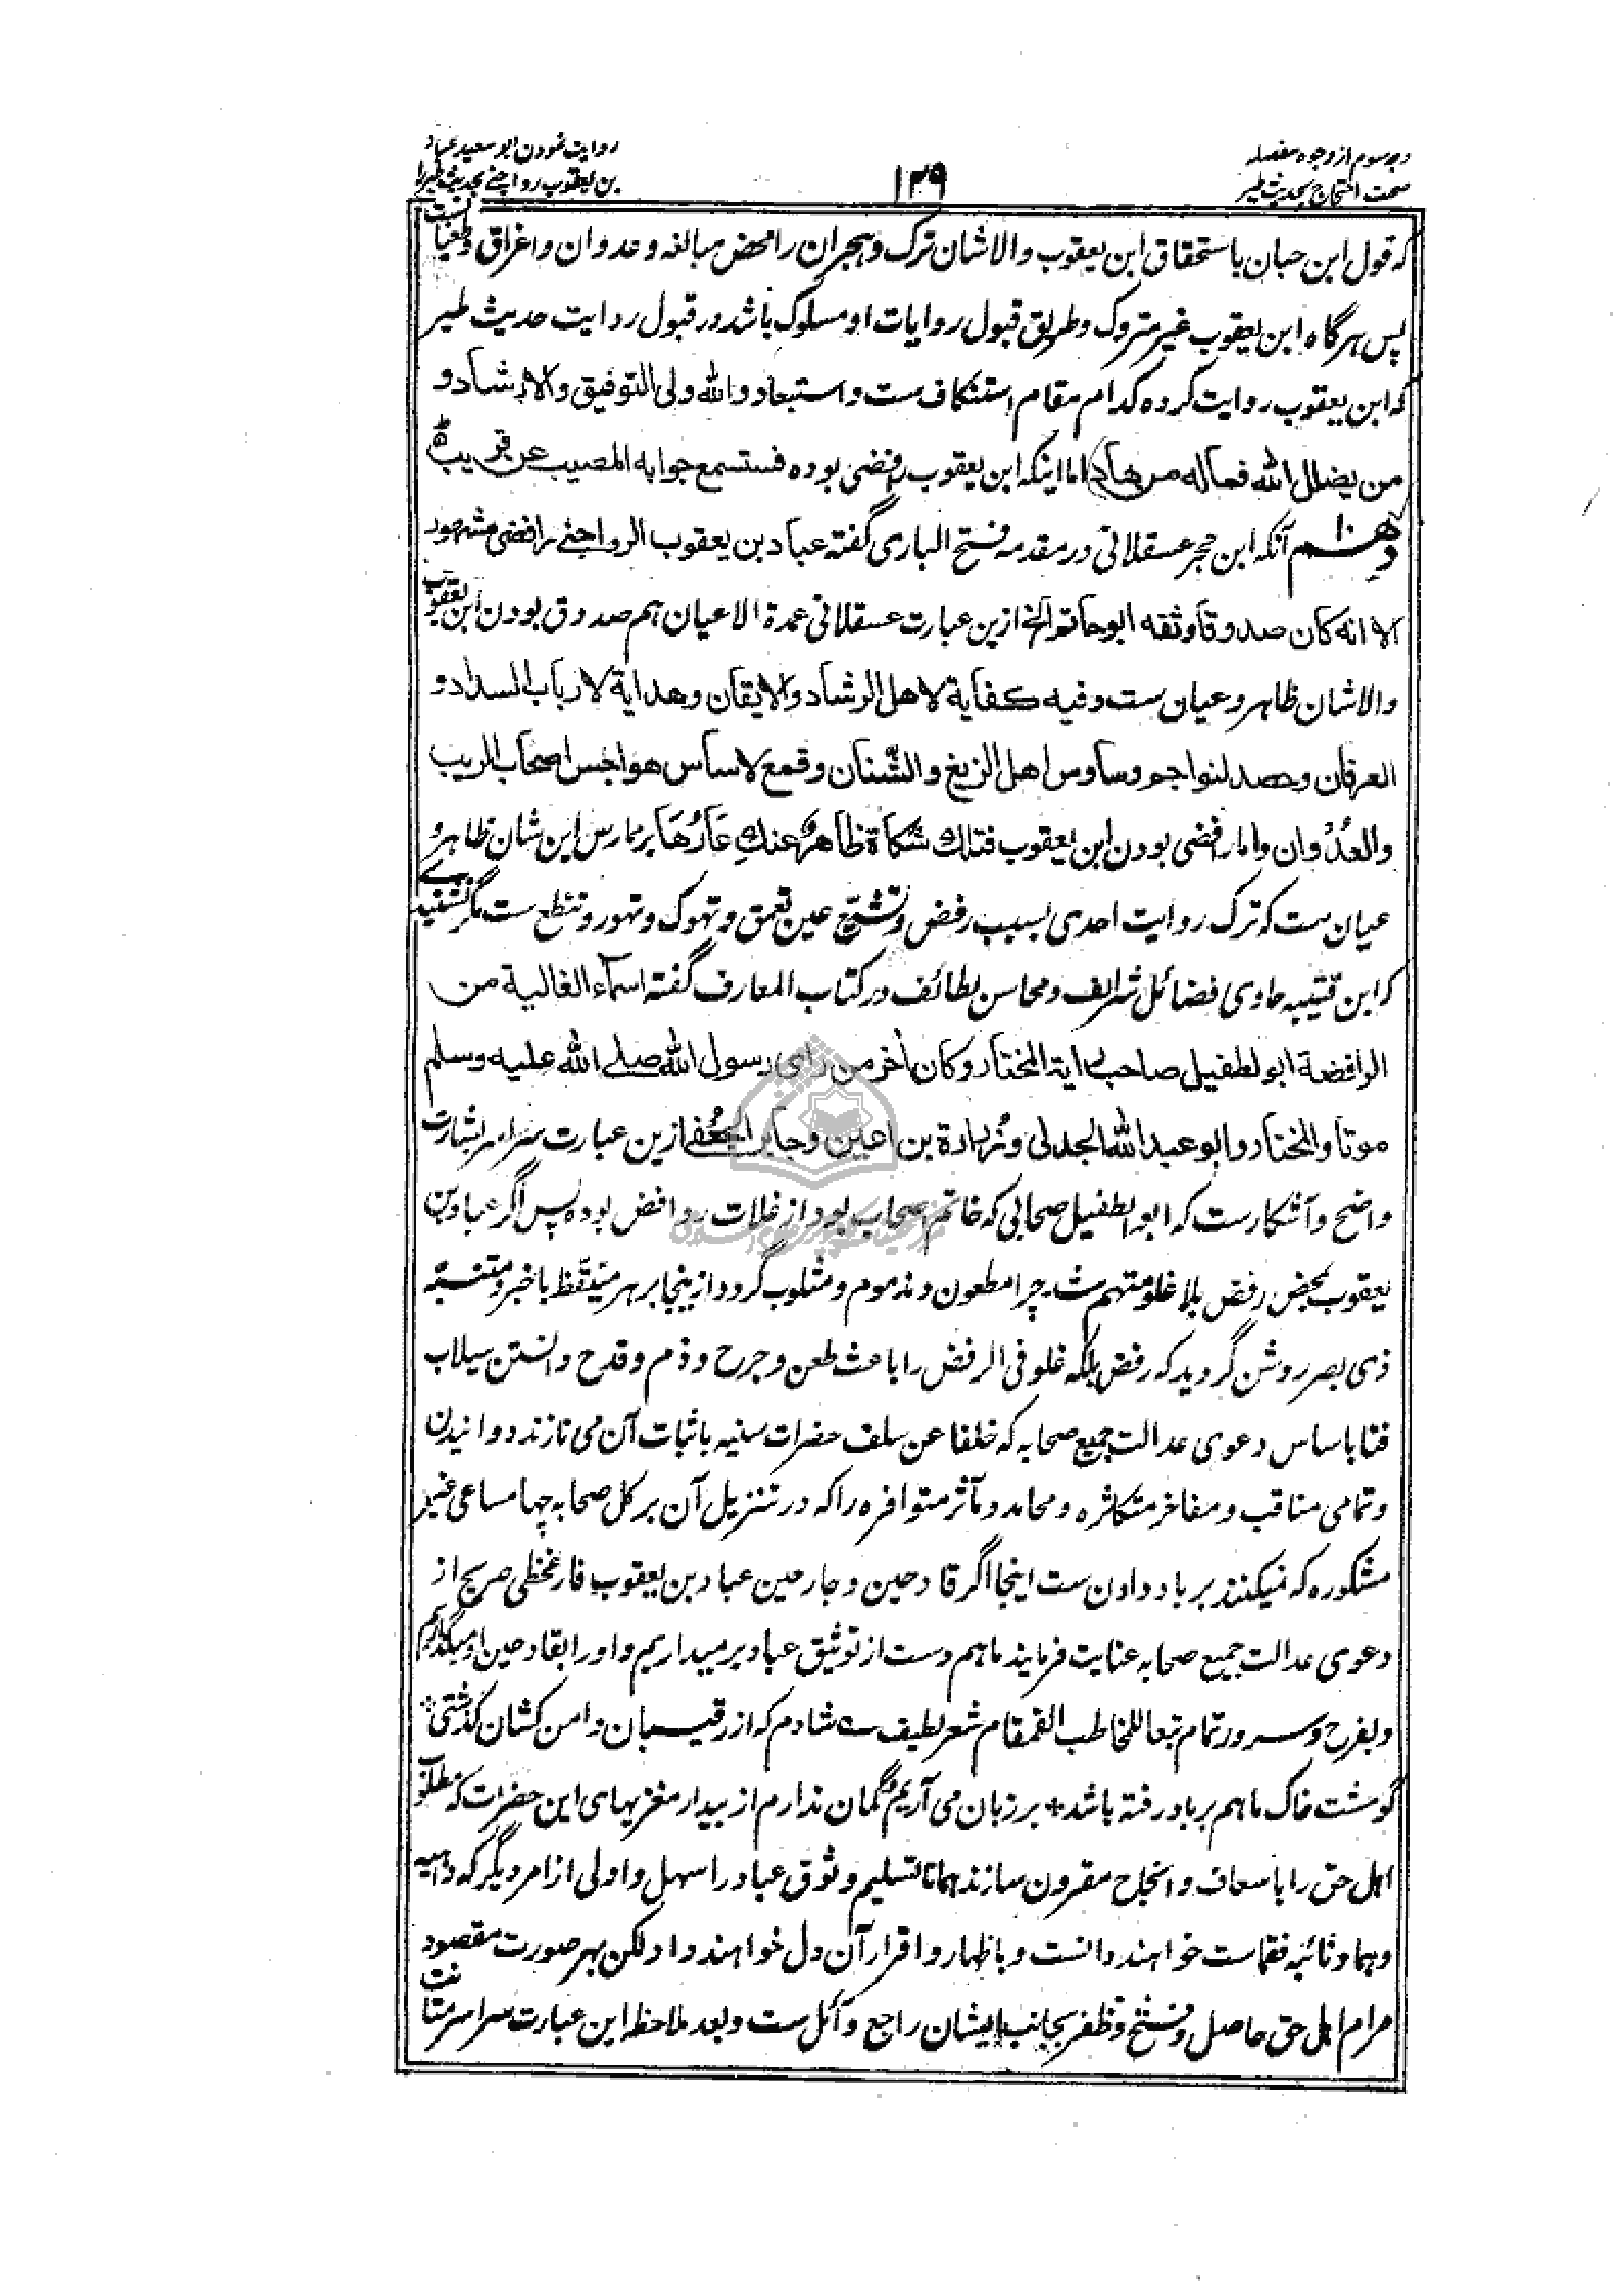 وجه سوم از وجوه مفصله
صحت احتجاج بحدیث طیر
۱۲۹
روایت نمودن ابو سعید عباد
بن یعقوب رواجنی حدیث طیر را
که قول ابن حبان باستحقاق ابن یعقوب والاشان ترک و هجران را محض مبالغه و عدوان و اغراق و طغیانست
پس هرگاه ابن یعقوب غیر متروک و طریق قبول روایات او مسلوک باشد در قبول روایت حدیث طیر
که ابن یعقوب روایت کرده کدام مقام استنکاف ست و استبعاد والله ولی التوفیق والارشاد و
من یضلل الله فماله من هاد اما اینکه ابن یعقوب رافضی بوده فستسمع جوابه المصیب عن قریب
دهم آنکه ابن حجر عسقلانی در مقدمه فتح الباری گفته عباد بن یعقوب الرواجنی رافضی مشهور
الا انه کان صدوقا وثقه ابو حاتم الخ ازین عبارت عسقلانی عمدة الاعیان هم صدوق بودن ابن یعقوب
والاشان ظاهر و عیان ست وفیه کفایة لاهل الرشاد والایقان وهدایة لارباب السداد و
العرفان وحصد لنواجم وساوس اهل الزیغ والشنان وقمع لاساس هواجس اصحاب الریب
والعدوان واما رافضی بودن ابن یعقوب فتلك شکاة ظاهر عنك عارها بر ممارس این شان ظاهر و
عیان ست که ترک روایت احدی بسبب رفض و تشیع عین تعمق و تهوک و تهور و تنطع ست مگر نشنیدی
که ابن قتیبه حاوی فضائل شرائف و محاسن لطائف در کتاب المعارف گفته اسماء الغالیة من
الرافضة ابو لطفیل صاحب رایة المختار وکان اخر من رای رسول الله صلی الله علیه وسلم
موتا والمختار وابو عبد الله الجدلی وزرارة بن اعین وجابر الجعفی ازین عبارت سراسر بشارت
واضح و آشکارست که ابو الطفیل صحابی که خاتم اصحاب بود از غلات روافض بوده پس اگر عباد بن
یعقوب بمحض رفض بلا غلو متهم شد چرا مطعون و مذموم و مثلوب گردد ازینجا بر هر متیقظ باخبر و متنبه
ذی بصر روشن گردید که رفض بلکه غلو فی الرفض را باعث طعن و جرح و ذم و قدح دانستن سیلاب
فنا باساس دعوی عدالت جمیع صحابه که خلفا عن سلف حضرات سنیه باثبات آن می نازند دوانیدن
و تمامی مناقب و مفاخر متکاثره و محامد و مآثر متوافره را که در تنزیل آن بر کل صحابه چها مساعی غیر
مشکوره که نمیکنند بر باد دادن ست اینجا اگر قادحین و جارحین عباد بن یعقوب فارغخطی صریح از
دعوی عدالت جمیع صحابه عنایت فرمایند ما هم دست از توثیق عباد برمیداریم و او را بقادحین او میگذاریم
و بفرح و سرور تمام تبعا للمخاطب القمقام شعر لطیف شادم که از رقیبان دامن کشان گذشتی *
گو مشت خاک ما هم بر باد رفته باشد + بر زبان می آریم و گمان ندارم از بیدار مغزیهای این حضرات که مطلوب
اهل حق را باسعاف و انجاح مقرون سازند همانا تسلیم وثوق عباد را سهل و اولی از امر دیگر که داهیه
دهیا و نائبه فقماست خواهند دانست و باظهار و اقرار آن دل خواهند داد لکن بهر صورت مقصود
مرام اهل حق حاصل و فتح و ظفر بجانب ایشان راجع و آئل ست و بعد ملاحظه این عبارت سراسر متانت